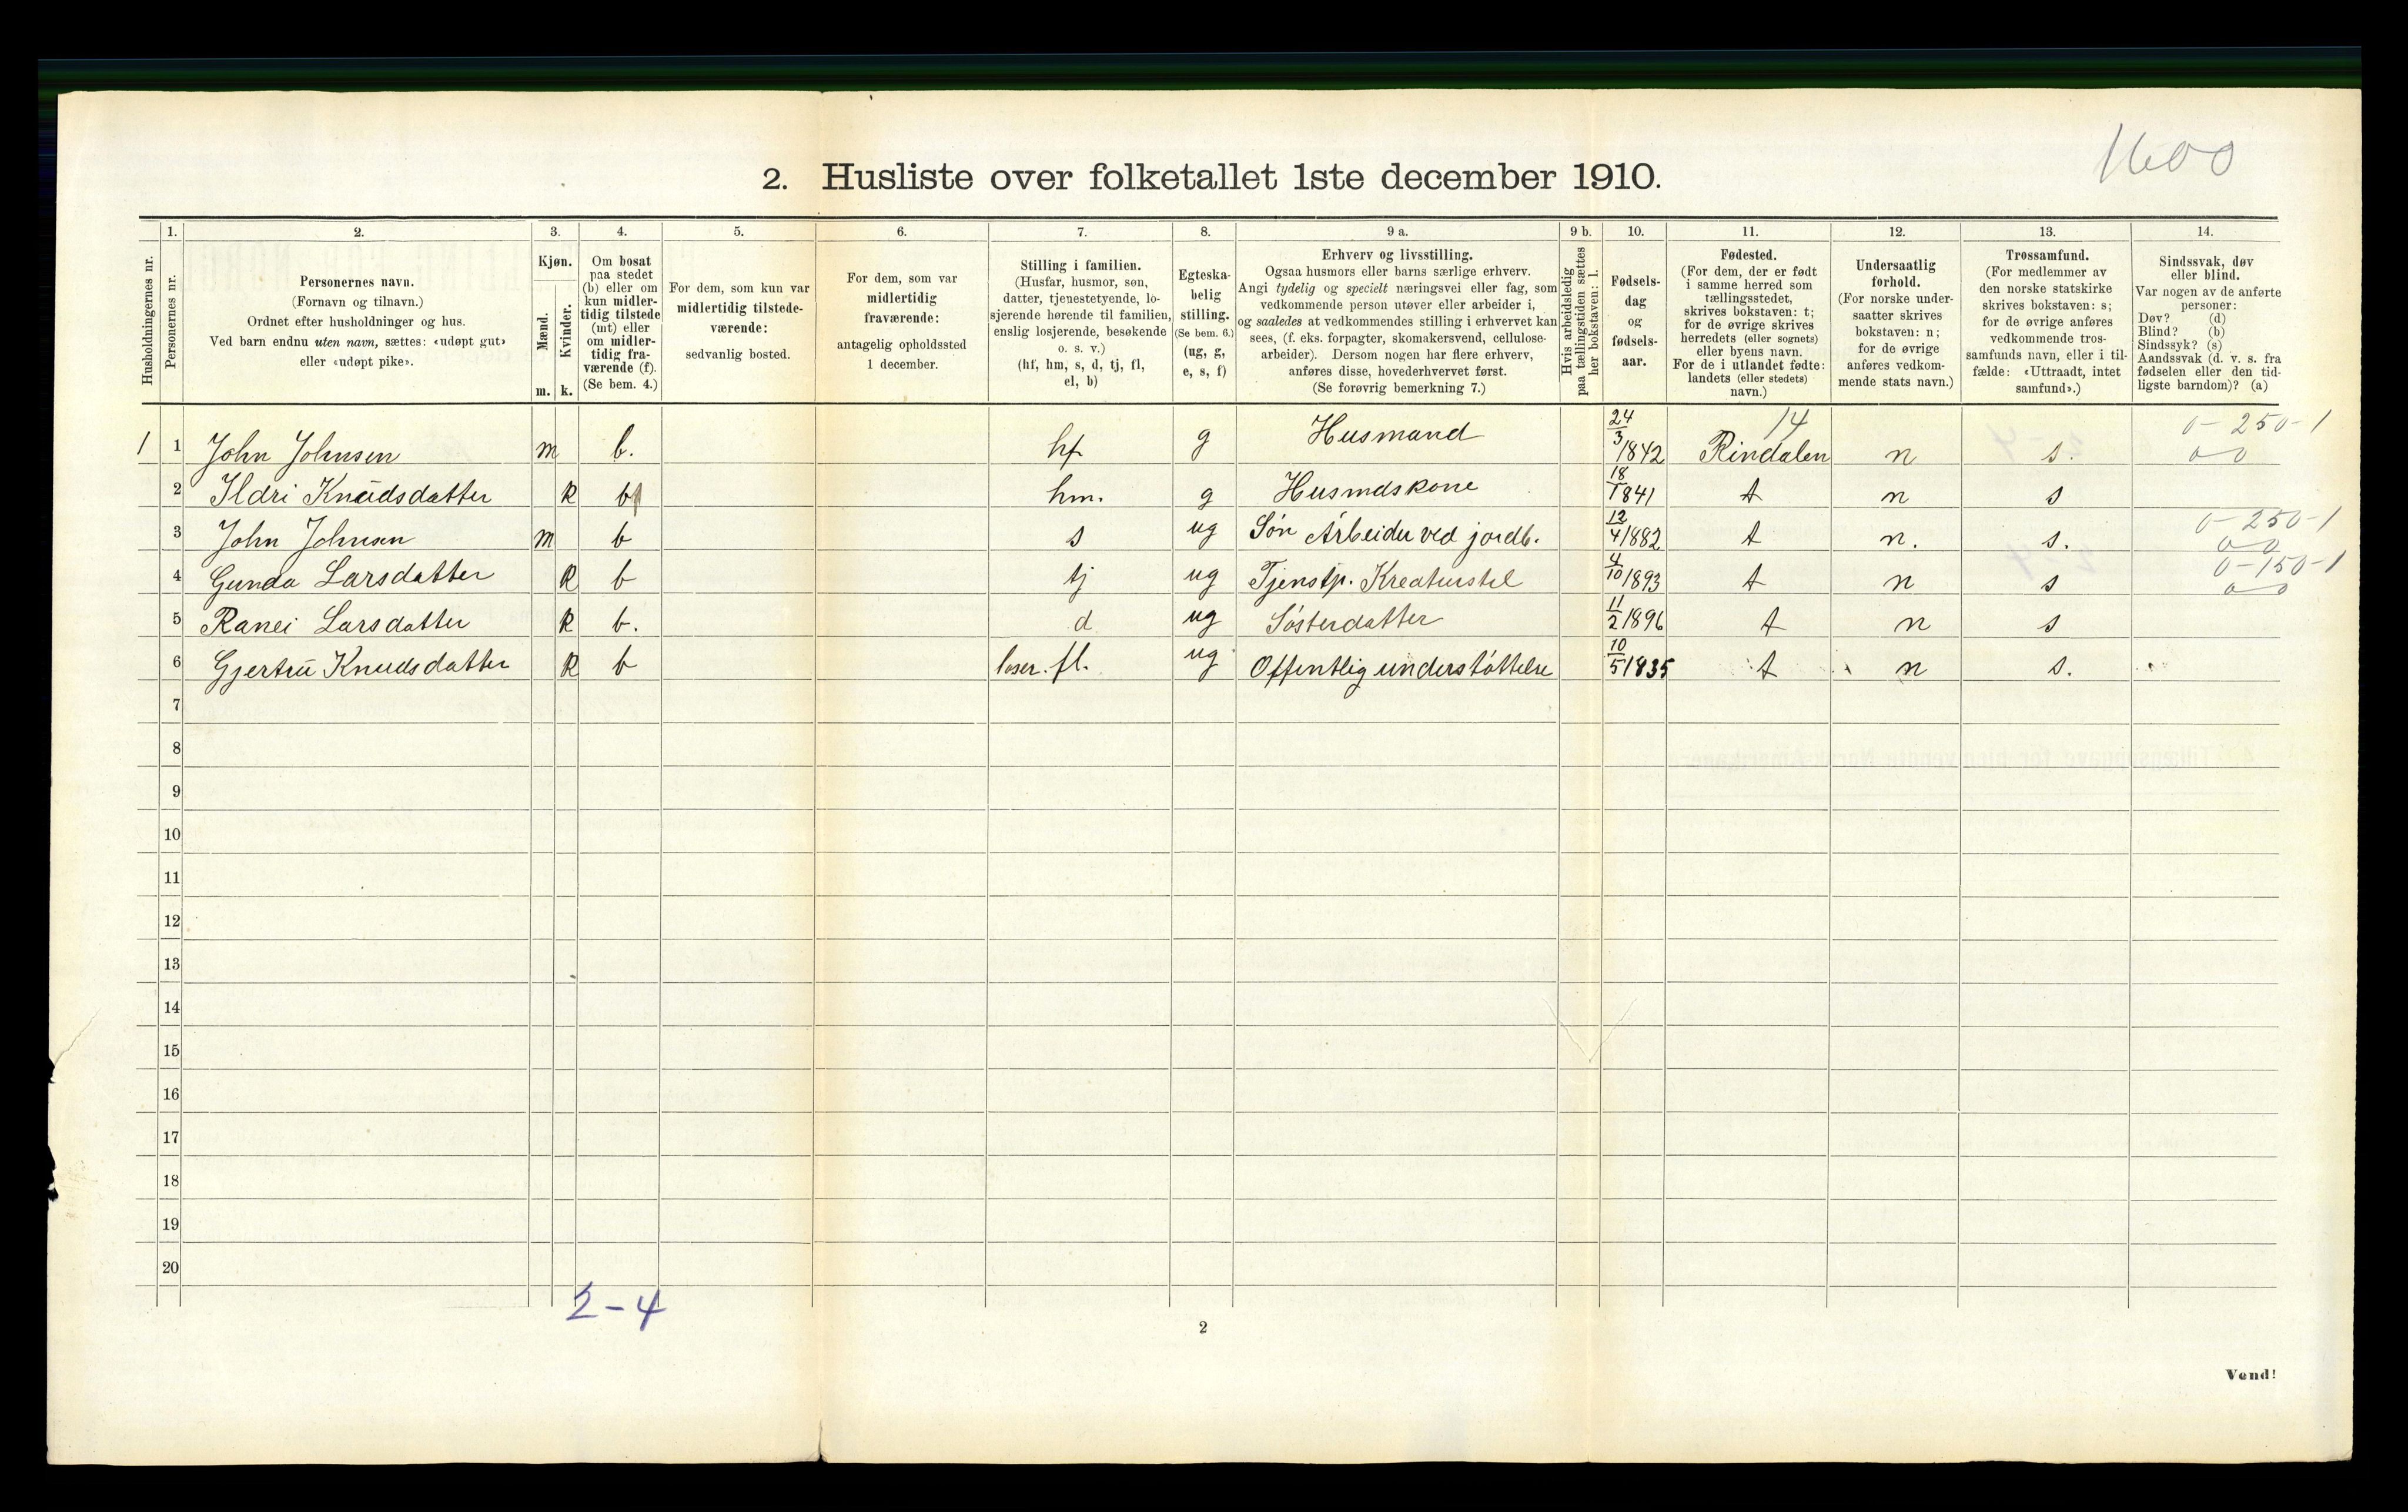 1600
2. Husliste over folketallet 1ste december 1910.
Husholdningernes nr.
1.
Personernes nr.
2.
Personernes navn.
(Fornavn og tilnavn.)
Ordnet efter husholdninger og hus.
Ved barn endnu uten navn, sættes: «udøpt gut»
eller «udøpt pike».
3.
Kjøn.
Mænd.
m.
Kvinder.
k.
4.
Om bosat
paa stedet
(b) eller om
kun midler-
tidig tilstede
(mt) eller
om midler-
tidig fra-
værende (f).
(Se bem. 4.)
5.
For dem, som kun var
midlertidig tilstede-
værende:
sedvanlig bosted.
6.
For dem, som var
midlertidig
fraværende:
antagelig opholdssted
1 december.
7.
Stilling i familien.
(Husfar, husmor, søn,
datter, tjenestetyende, lo-
sjerende hørende til familien,
enslig losjerende, besøkende
o. s. v.)
(hf, hm, s, d, tj, fl,
el, b)
8.
Egteska-
belig
stilling.
(Se bem. 6.)
(ug, g,
e, s, f)
9 a.
Erhverv og livsstilling.
Ogsaa husmors eller barns særlige erhverv.
Angi tydelig og specielt næringsvei eller fag, som
vedkommende person utøver eller arbeider i,
og saaledes at vedkommendes stilling i erhvervet kan
sees, (f. eks. forpagter, skomakersvend, cellulose-
arbeider). Dersom nogen har flere erhverv,
anføres disse, hovederhvervet først.
(Se forøvrig bemerkning 7.)
9 b.
Hvis arbeidsledig
paa tællingstiden sættes
her bokstaven: l.
10.
Fødsels-
dag
og
fødsels-
aar.
11.
Fødested.
(For dem, der er født
i samme herred som
tællingsstedet,
skrives bokstaven: t;
for de øvrige skrives
herredets (eller sognets)
eller byens navn.
For de i utlandet fødte:
landets (eller stedets)
navn.)
12.
Undersaatlig
forhold.
(For norske under-
saatter skrives
bokstaven: n;
for de øvrige
anføres vedkom-
mende stats navn.)
13.
Trossamfund.
(For medlemmer av
den norske statskirke
skrives bokstaven: s;
for de øvrige anføres
vedkommende tros-
samfunds navn, eller i til-
fælde: «Uttraadt, intet
samfund».)
14.
Sindssvak, døv
eller blind.
Var nogen av de anførte
personer:
Døv? (d)
Blind? (b)
Sindssyk? (s)
Aandssvak (d. v. s. fra
fødselen eller den tid-
ligste barndom)? (a)
1 1 John Johnsen m b. hf g Husmand 24/3 1842 14 Rindalen n s. 0-250-1 0-0
2 Ildri Knudsdatter k b hm. g Husmdskone 18/1 1841 t n s
3 John Johnsen m b s ug Søn Arbeider ved jordb. 12/4 1882 t n. s. 0-250-1 0-0
4 Gunda Larsdatter k b tj ug Tjenstp. Kreaturstel 4/10 1893 t n s 0-150-1 0-0
5 Ranei Larsdatter k b. d ug Søsterdatter 11/2 1896 t n s
6 Gjertru Knudsdatter k b loser. fl. ug Offentlig understøttelse 10/5 1835 t n s.
7
8
9
10
11
12
13
14
15
16
17
18
19
20
2-4
2
Vend!